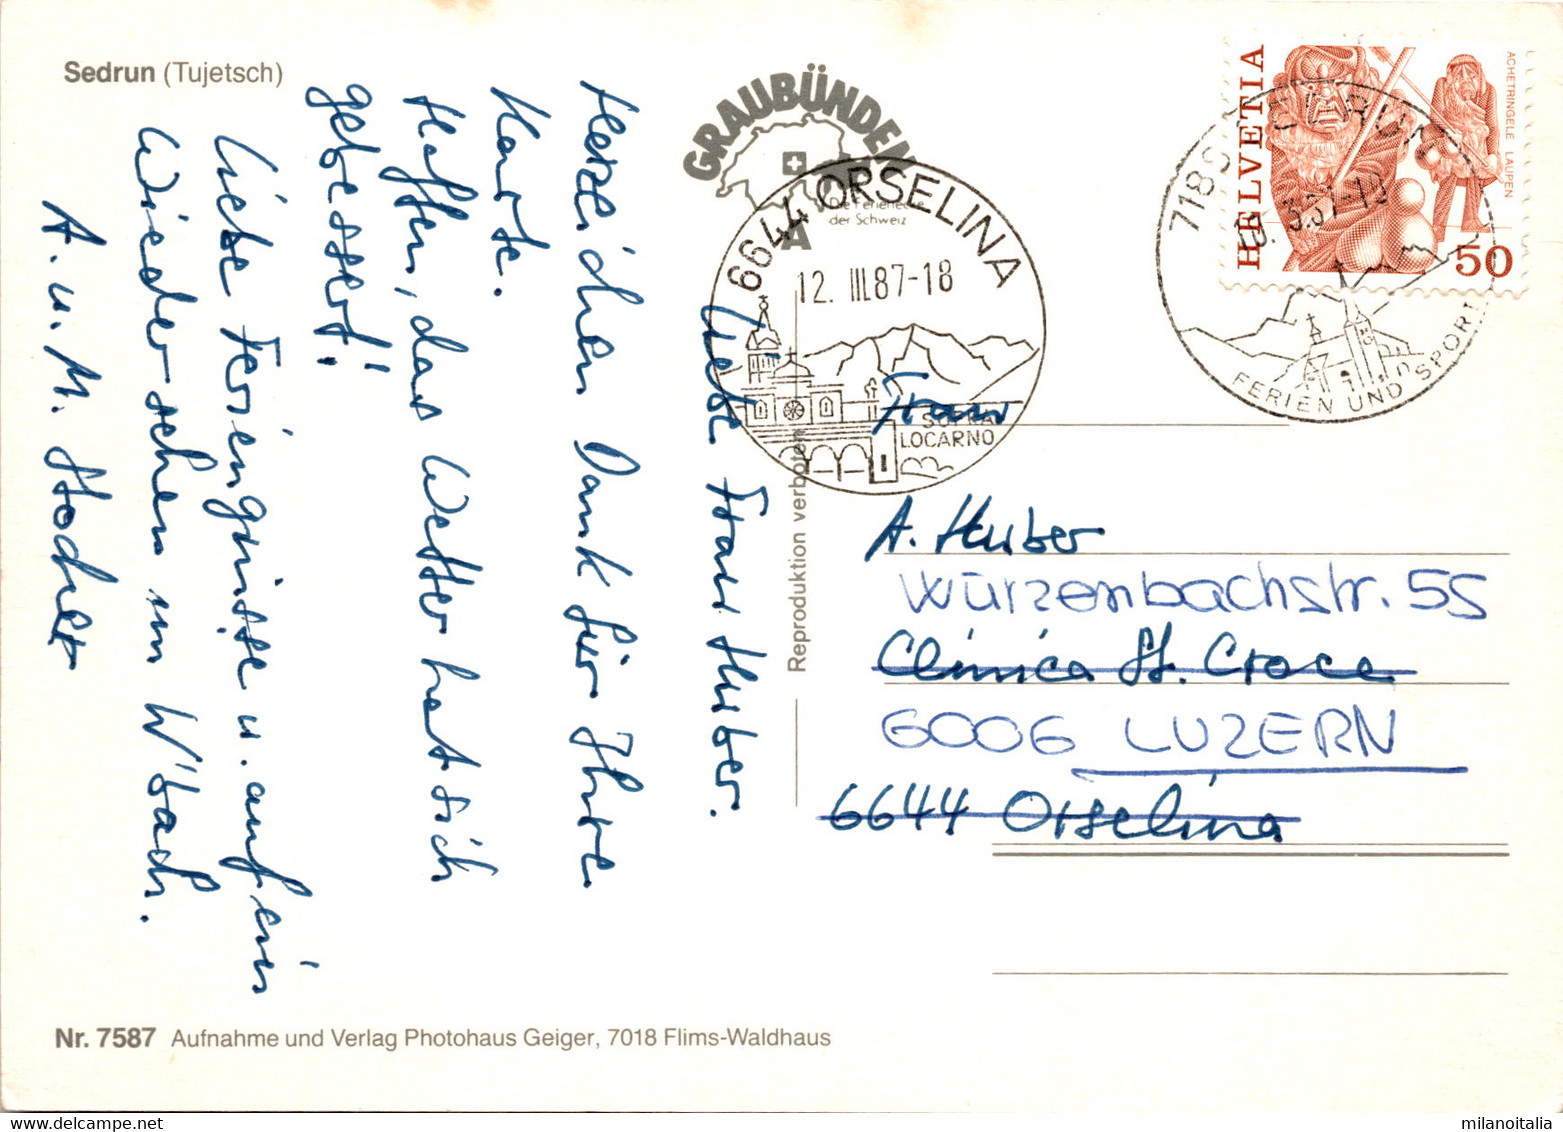 Sedrun (Tujetsch)
GRAUBÜNDEN
Die Ferienecke
der Schweiz
Liebe Frau Huber.
Herzlichen Dank für Ihre
Karte.
Hoffen, das Wetter hat sich
gebessert!
Liebe Feriengrüsse u. auf ein
Wiedersehen im W'bach.
A. u. M. Stocker
Reproduktion verboten
6644 ORSELINA
12. III.87-18
SOPRA
LOCARNO
HELVETIA
ACHETRINGELE LAUPEN
50
SEDRUN
3.87-19
FERIEN UND SPORT
Frau
A. Huber
Würzenbachstr. 55
Clinica St. Croce
6006 LUZERN
6644 Orselina
Nr. 7587 Aufnahme und Verlag Photohaus Geiger, 7018 Flims-Waldhaus
milanoitalia